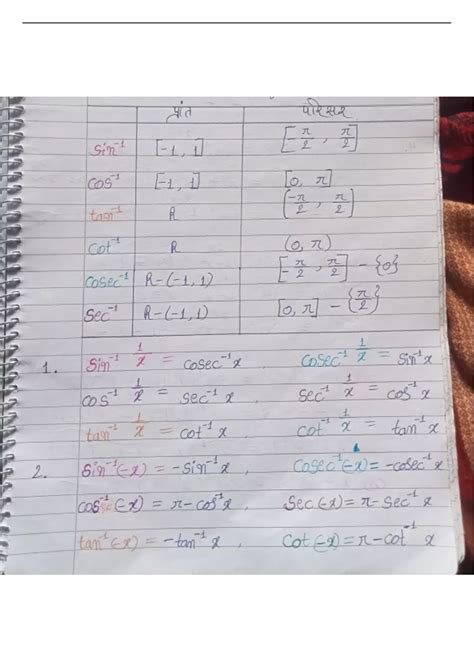 प्रांत परिसर
sin⁻¹ [-1, 1] [-π/2, π/2]
cos⁻¹ [-1, 1] [0, π]
tan⁻¹ R (-π/2, π/2)
cot⁻¹ R (0, π)
cosec⁻¹ R-(-1, 1) [-π/2, π/2] - {0}
sec⁻¹ R-(-1, 1) [0, π] - {π/2}
1. sin⁻¹ 1/x = cosec⁻¹ x , cosec⁻¹ 1/x = sin⁻¹ x
cos⁻¹ 1/x = sec⁻¹ x , sec⁻¹ 1/x = cos⁻¹ x
tan⁻¹ 1/x = cot⁻¹ x , cot⁻¹ 1/x = tan⁻¹ x
2. sin⁻¹(-x) = -sin⁻¹ x , cosec⁻¹(-x) = -cosec⁻¹ x
cos⁻¹(-x) = π-cos⁻¹ x , sec(-x) = π-sec⁻¹ x
tan⁻¹(-x) = -tan⁻¹ x , cot(-x) = π-cot⁻¹ x